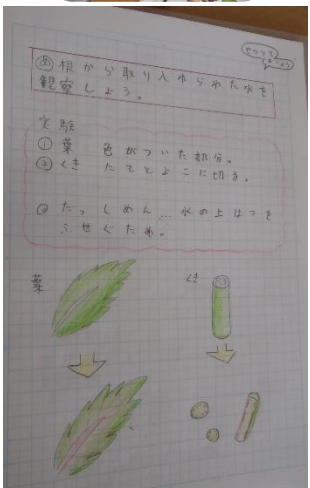 やってて
みよう
め 根から取り入れられた水を
観察しよう。
実験
① 葉 色がついた部分。
② くき たてとよこに切る。
だっしめん…水の上はつを
ふせぐため。
葉
くき